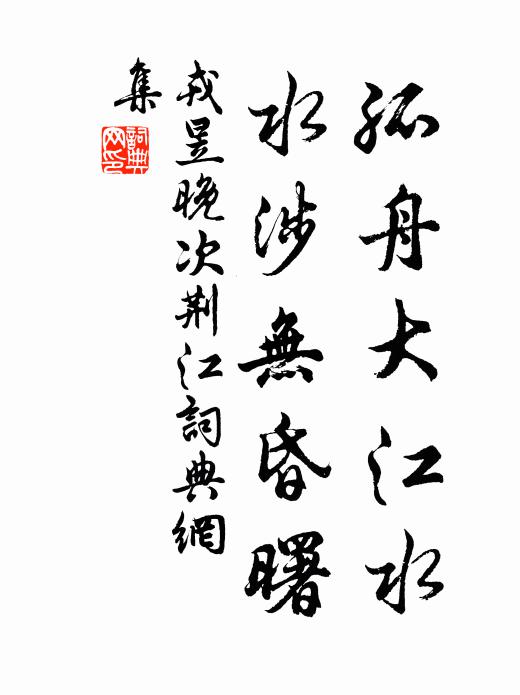 孤舟大江水
水涉無昏曙
戎昱晚次荆江詞典網
集
詞典網印